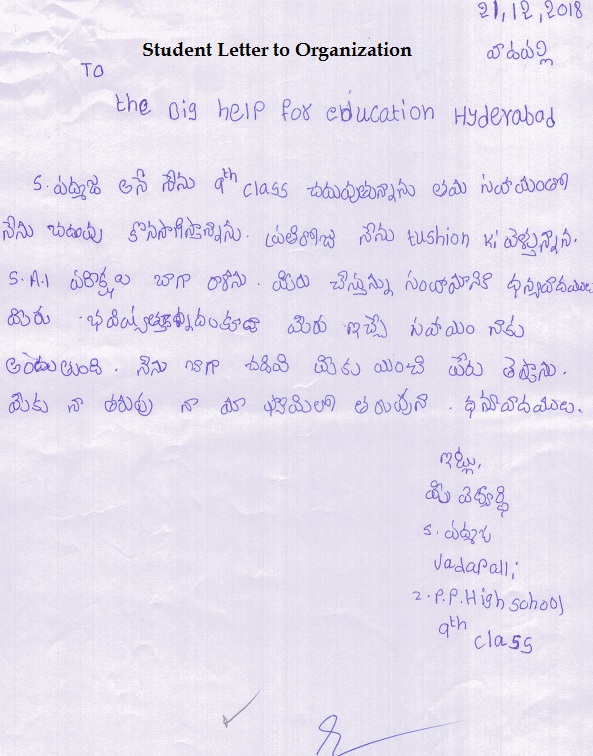 21,12,2018
వాడపల్లి
Student Letter to Organization
TO
the Big help for education Hyderabad
S. పద్మజ అనే నేను 9th class చదువుతున్నాను తమ సహాయంతో
నేను చదువు కొనసాగిస్తున్నాను. ప్రతిరోజు నేను tushion ki వెళ్తున్నాను.
S.A.1 పరీక్షలు బాగా రాశాను. మీరు చేస్తున్న ధన్యవాదములు
మీరు మీరు ఇచ్చే సహాయం నాకు
అందుతుంది. నేను బాగా చదివి మీకు మంచి పేరు తెస్తాను.
మీకు నా తరుపు నా మా తరుపునా. ధన్యవాదములు.
ఇట్లు,
మీ విద్యార్థి
S. పద్మజ
Vadapalli;
Z.P.P.High school
9th
class